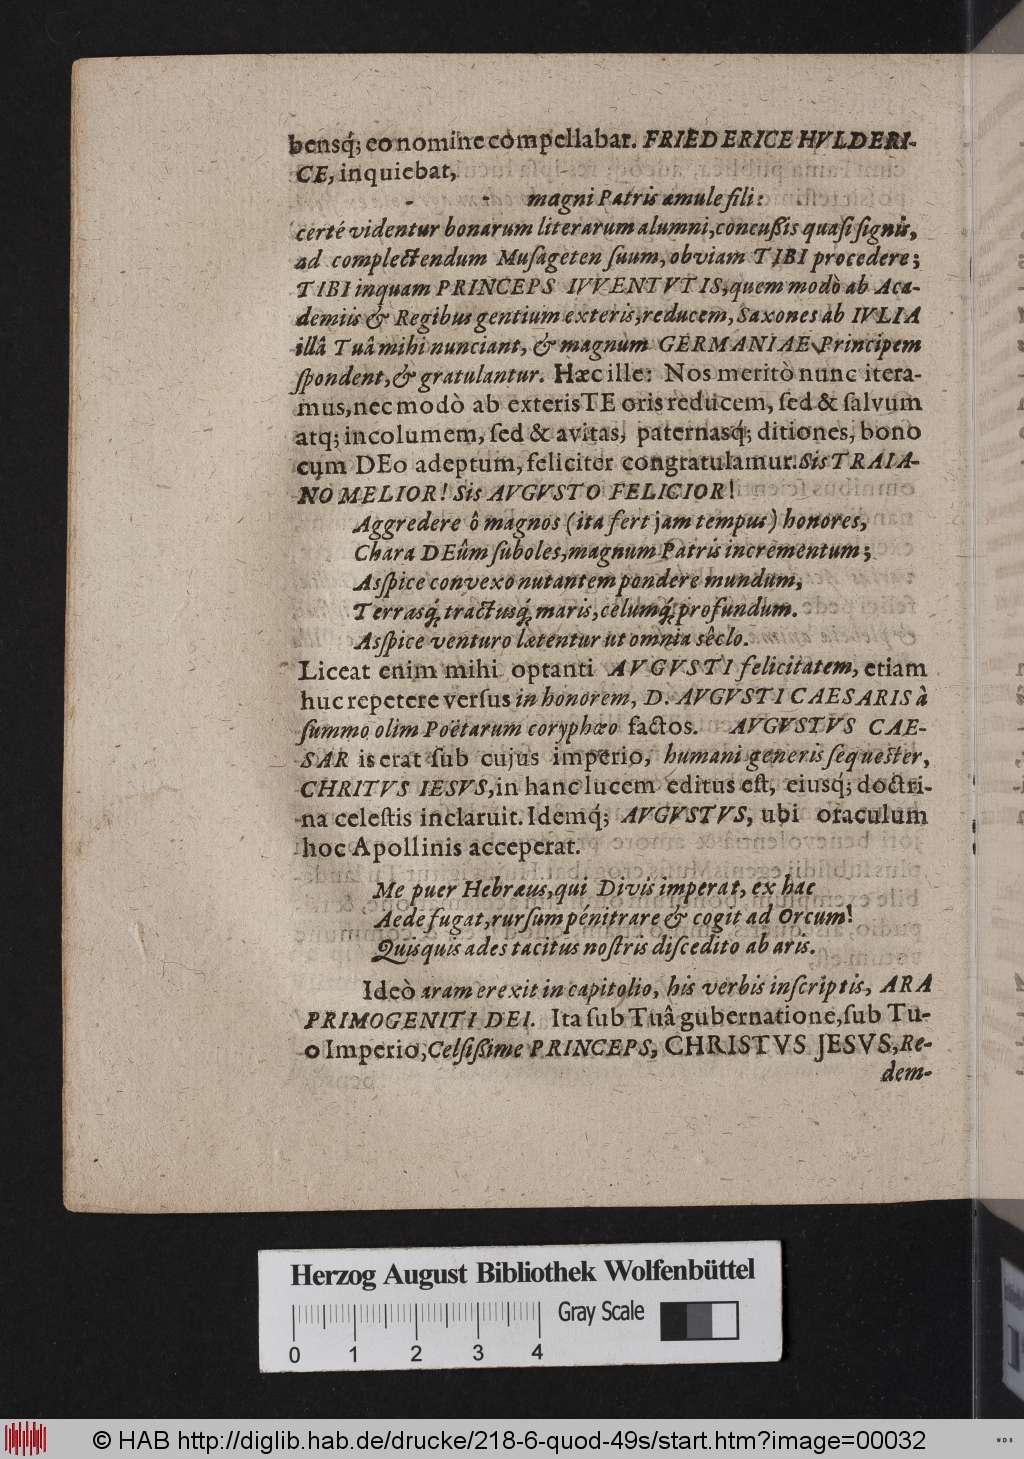 bensq́; eo nomine compellabat. FRIEDERICE HVLDERI-
CE, inquiebat,
- - magni Patris æmule fili:
certé videntur bonarum literarum alumni, concußis quaſi ſignis,
ad complectendum Muſageten ſuum, obviam TIBI procedere;
TIBI inquam PRINCEPS IVVENTVTIS, quem modò ab Aca-
demiis & Regibus gentium exteris, reducem, Saxones ab IVLIA
illâ Tuâ mihi nunciant, & magnum GERMANIAE Principem
ſpondent, & gratulantur. Hæc ille: Nos meritò nunc itera-
mus, nec modò ab exteris TE oris reducem, ſed & ſalvum
atq; incolumem, ſed & avitas, paternasq́; ditiones, bono
cum DEo adeptum, feliciter congratulamur. Sis TRAIA-
NO MELIOR! Sis AVGVSTO FELICIOR!
Aggredere ô magnos (ita fert jam tempus) honores,
Chara DEûm ſuboles, magnum Patris incrementum;
Asſpice convexo nutantem pondere mundum,
Terrasq́; tractusq́; maris, celumq́; profundum.
Asſpice venturo lætentur ut omnia sêclo.
Liceat enim mihi optanti AVGVSTI felicitatem, etiam
huc repetere verſus in honorem, D. AVGVSTI CAESARIS à
ſummo olim Poëtarum coryphæo factos. AVGVSTVS CAE-
SAR is erat ſub cujus imperio, humani generis ſequeſter,
CHRITVS IESVS, in hanc lucem editus eſt, eiusq́; doctri-
na celeſtis inclaruit. Idemq́; AVGVSTVS, ubi oraculum
hoc Apollinis acceperat.
Me puer Hebræus, qui Divis imperat, ex hac
Aede fugat, rurſum pénitrare & cogit ad Orcum!
Quisquis ades tacitus noſtris diſcedito ab aris.
Ideò aram erexit in capitolio, his verbis inſcriptis, ARA
PRIMOGENITI DEI. Ita ſub Tuâ gubernatione, ſub Tu-
o Imperio, Celſißime PRINCEPS, CHRISTVS JESVS, Re-
dem-
Herzog August Bibliothek Wolfenbüttel
Gray Scale
0 1 2 3 4
© HAB http://diglib.hab.de/drucke/218-6-quod-49s/start.htm?image=00032